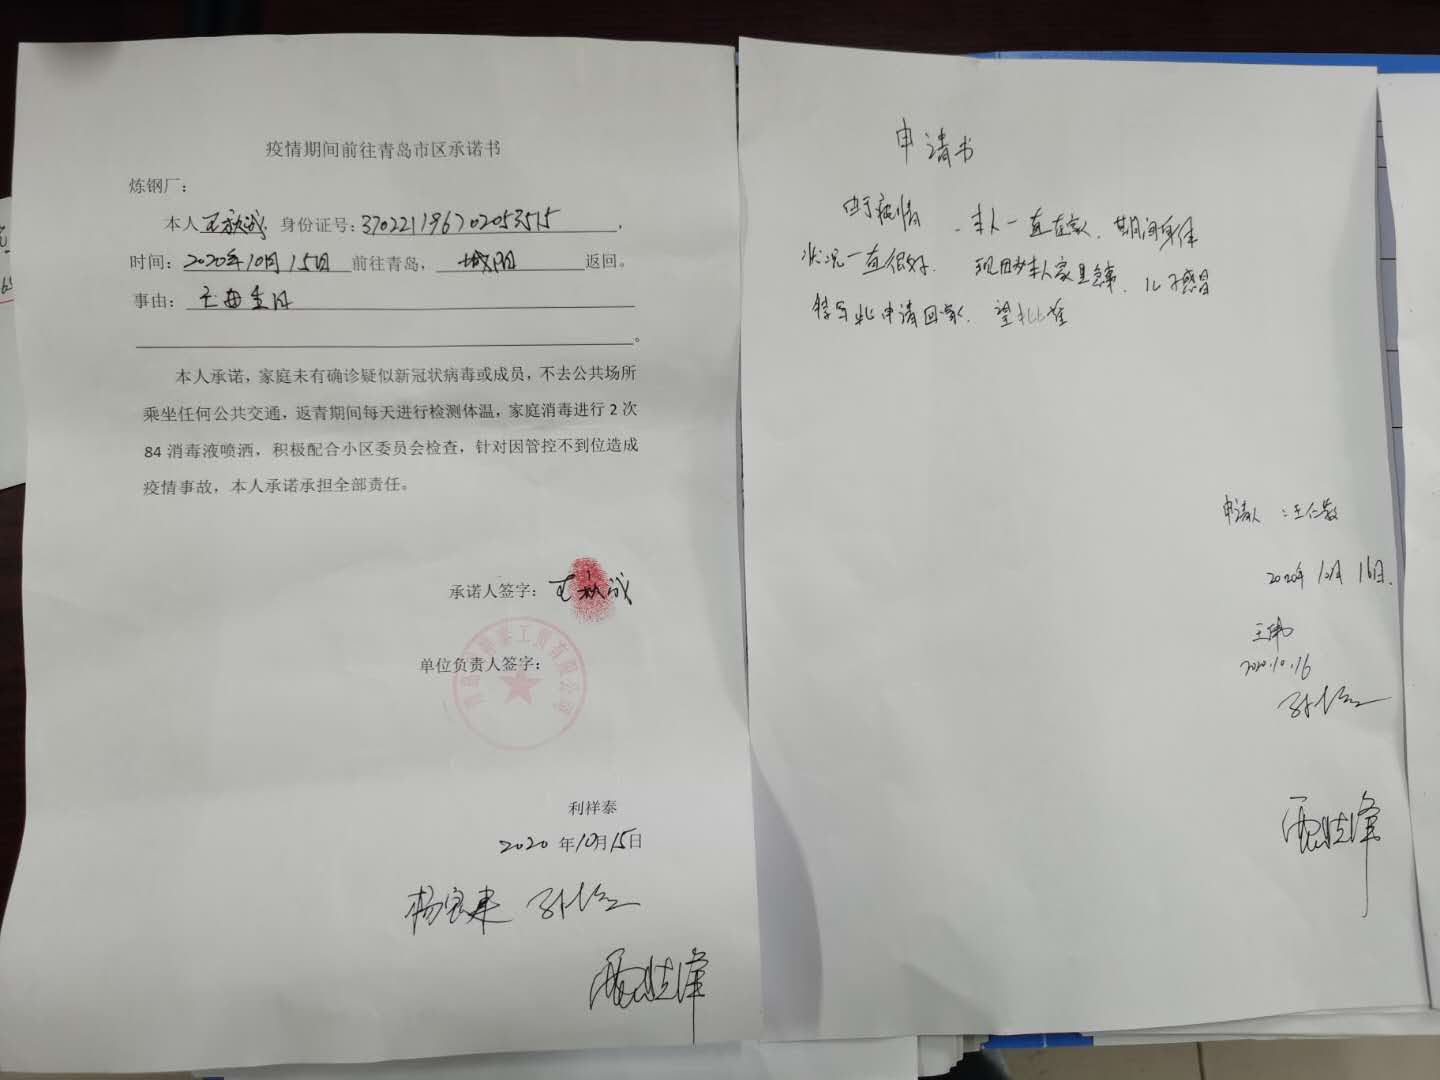 疫情期间前往青岛市区承诺书
炼钢厂：
本人王秋诚，身份证号：370221196702053515，
时间：2020年10月15日前往青岛，城阳返回。
事由：
本人承诺，家庭未有确诊疑似新冠状病毒或成员，不去公共场所
乘坐任何公共交通，返青期间每天进行检测体温，家庭消毒进行2次
84消毒液喷洒，积极配合小区委员会检查，针对因管控不到位造成
疫情事故，本人承诺承担全部责任。
承诺人签字：王秋诚
单位负责人签字：
工贸有限公司
利祥泰
2020年10月15日
杨宝来
申请书
由于疫情、本人一直在家、期间身体
状况一直很好. 现因本人家里急事、儿子感冒
特写此申请回家. 望批准
申请人：王仁敬
2020年10月16日.
王伟
2020.10.16